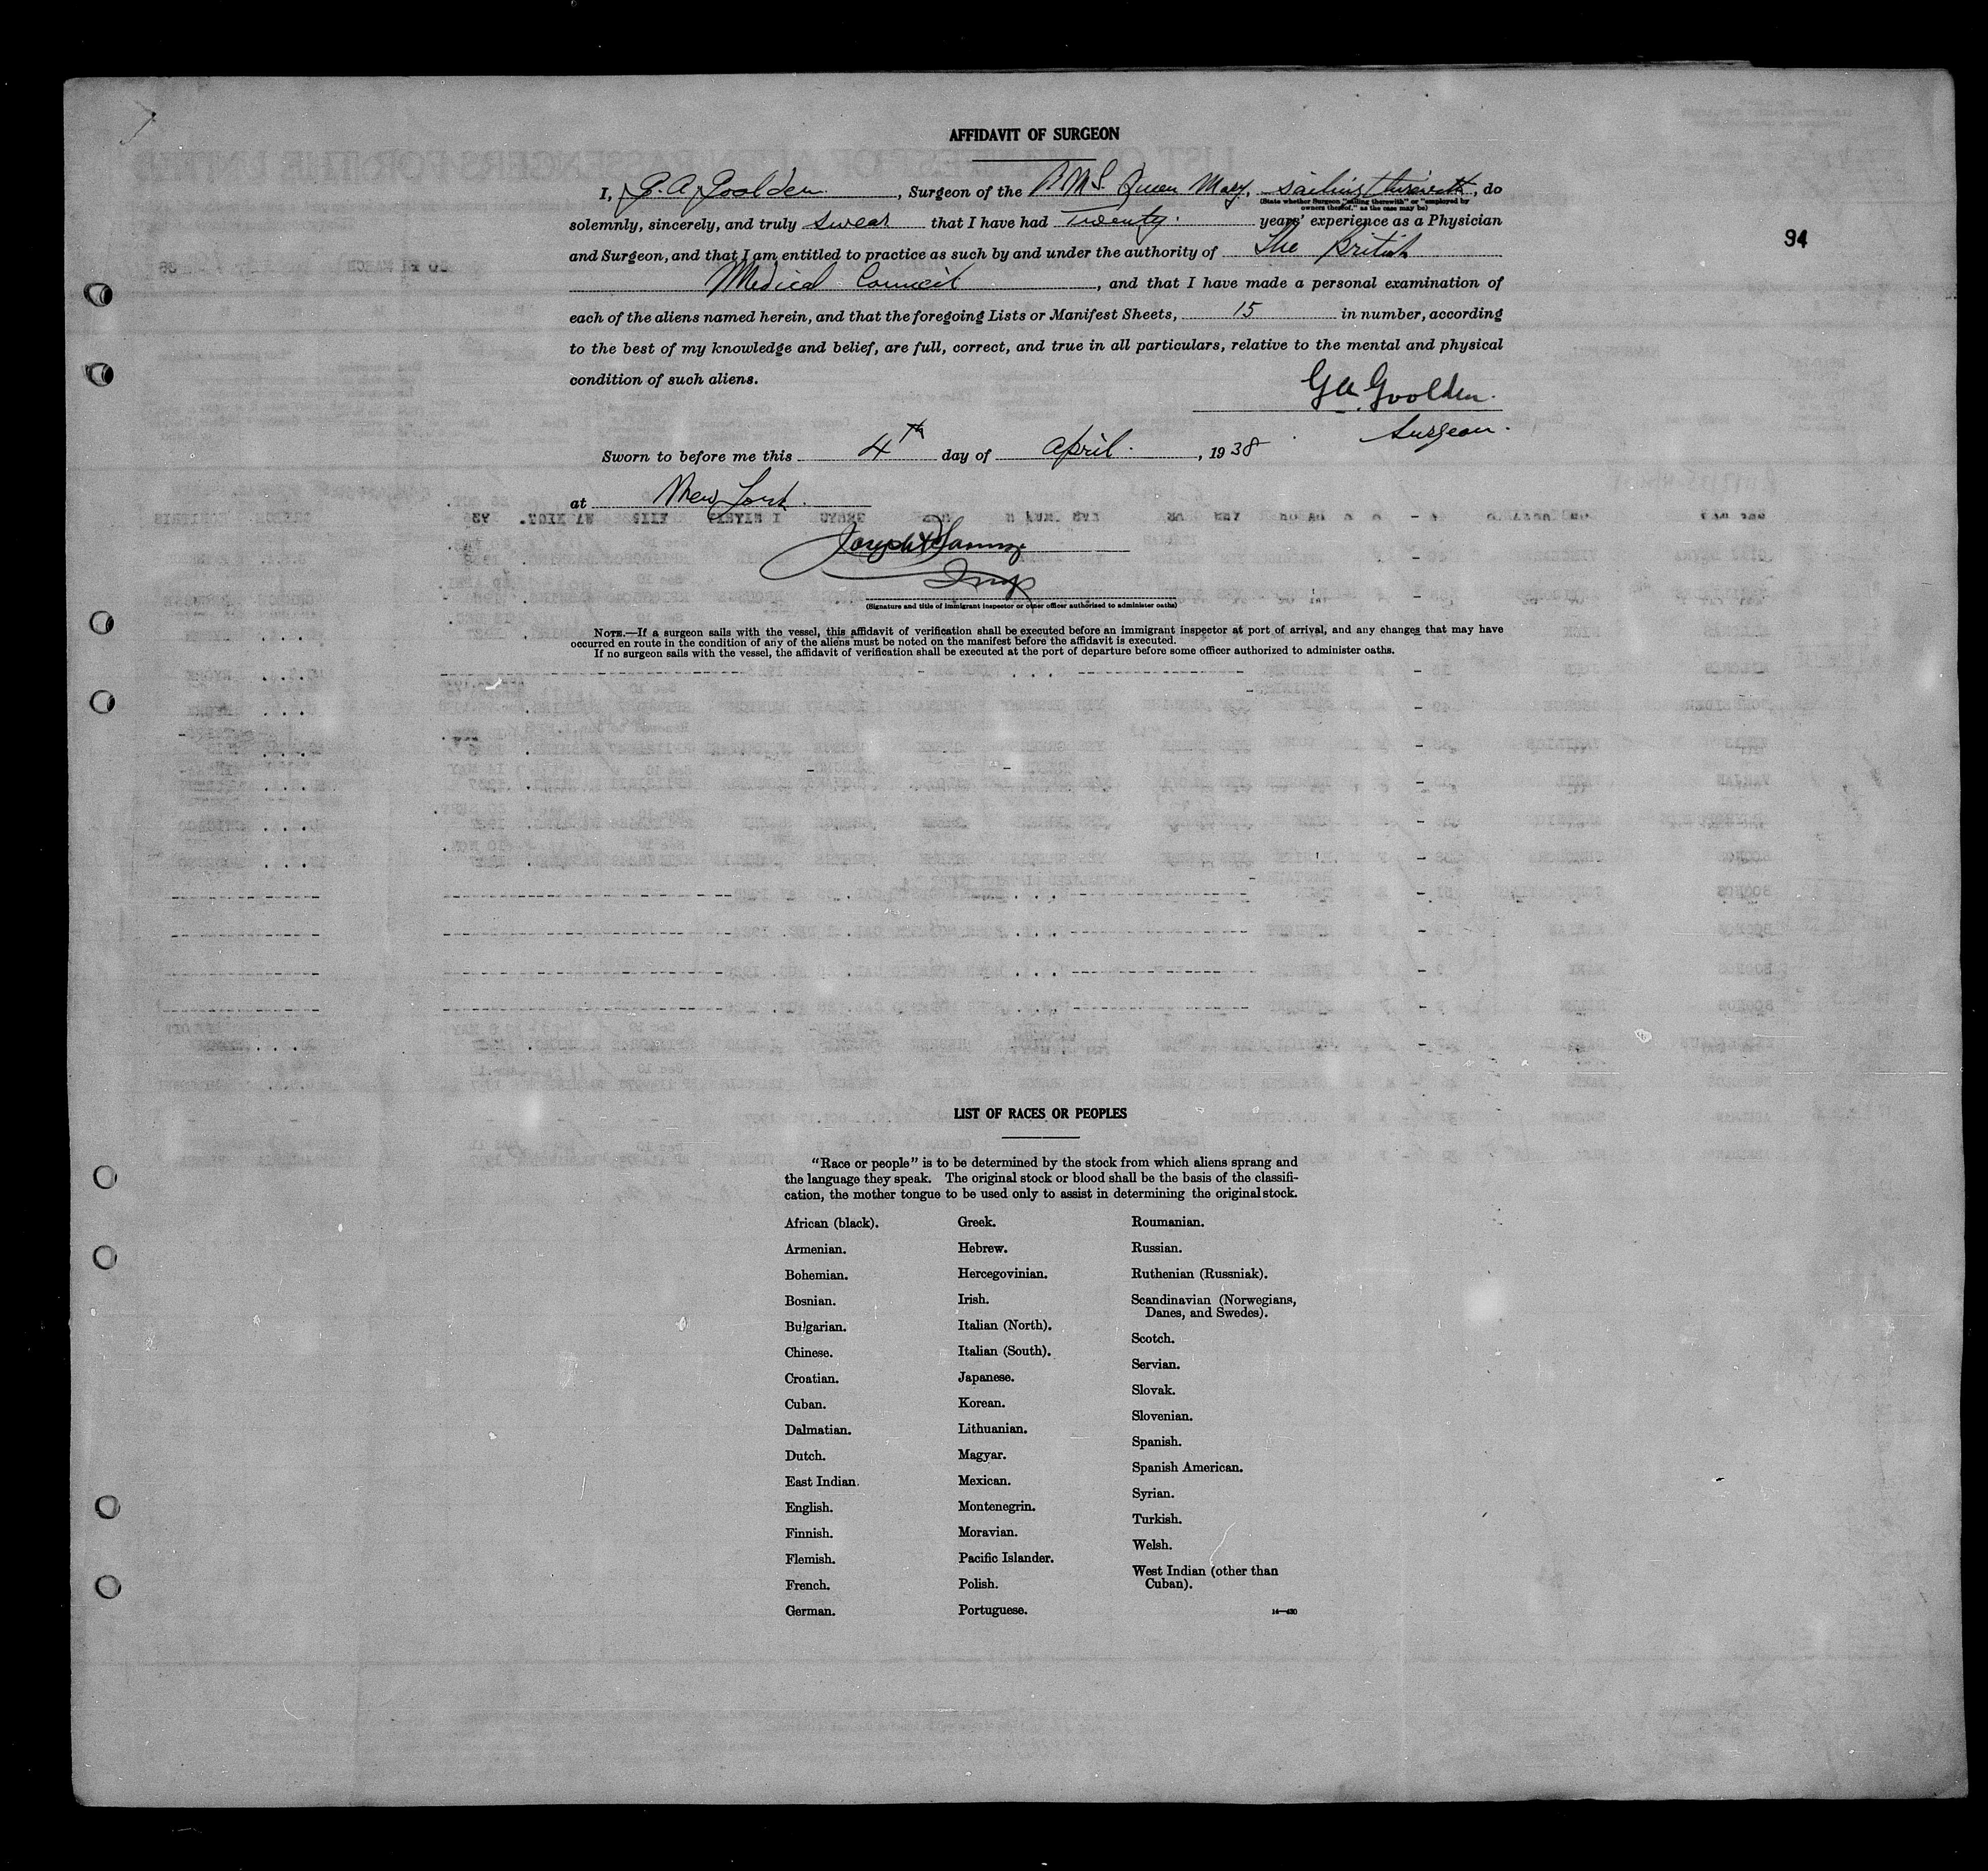 94
AFFIDAVIT OF SURGEON
I, G. A. Goolden, Surgeon of the R.M.S. Queen Mary, sailing therewith, do
(State whether Surgeon "sailing therewith" or "employed by
owners thereof," as the case may be)
solemnly, sincerely, and truly swear that I have had Twenty. years' experience as a Physician
and Surgeon, and that I am entitled to practice as such by and under the authority of The British
Medical Council, and that I have made a personal examination of
each of the aliens named herein, and that the foregoing Lists or Manifest Sheets, 15 in number, according
to the best of my knowledge and belief, are full, correct, and true in all particulars, relative to the mental and physical
condition of such aliens.
G A Goolden.
Surgeon.
Sworn to before me this 4th day of April. , 1938
at New York.
Insp
(Signature and title of immigrant inspector or other officer authorized to administer oaths)
NOTE.—If a surgeon sails with the vessel, this affidavit of verification shall be executed before an immigrant inspector at port of arrival, and any changes that may have
occurred en route in the condition of any of the aliens must be noted on the manifest before the affidavit is executed.
If no surgeon sails with the vessel, the affidavit of verification shall be executed at the port of departure before some officer authorized to administer oaths.
LIST OF RACES OR PEOPLES
"Race or people" is to be determined by the stock from which aliens sprang and
the language they speak. The original stock or blood shall be the basis of the classifi-
cation, the mother tongue to be used only to assist in determining the original stock.
African (black).
Armenian.
Bohemian.
Bosnian.
Bulgarian.
Chinese.
Croatian.
Cuban.
Dalmatian.
Dutch.
East Indian.
English.
Finnish.
Flemish.
French.
German.
Greek.
Hebrew.
Hercegovinian.
Irish.
Italian (North).
Italian (South).
Japanese.
Korean.
Lithuanian.
Magyar.
Mexican.
Montenegrin.
Moravian.
Pacific Islander.
Polish.
Portuguese.
Roumanian.
Russian.
Ruthenian (Russniak).
Scandinavian (Norwegians,
Danes, and Swedes).
Scotch.
Servian.
Slovak.
Slovenian.
Spanish.
Spanish American.
Syrian.
Turkish.
Welsh.
West Indian (other than
Cuban).
14—430